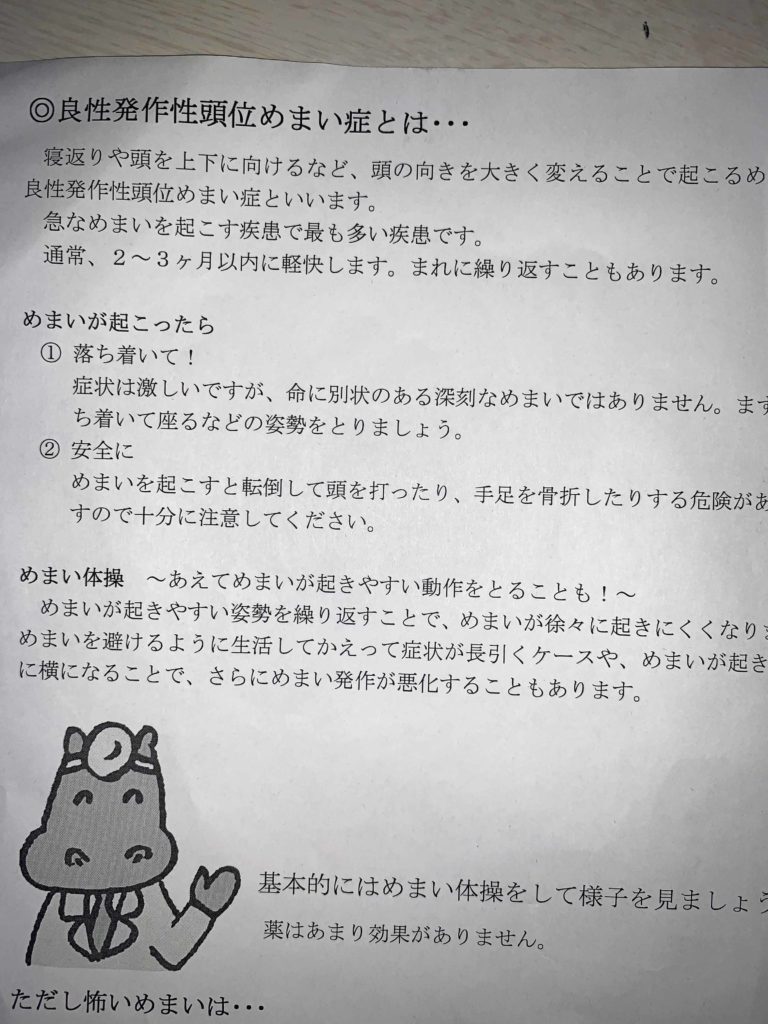 ◎良性発作性頭位めまい症とは・・・
寝返りや頭を上下に向けるなど、頭の向きを大きく変えることで起こるめ
良性発作性頭位めまい症といいます。
急なめまいを起こす疾患で最も多い疾患です。
通常、２～３ヶ月以内に軽快します。まれに繰り返すこともあります。
めまいが起こったら
① 落ち着いて！
症状は激しいですが、命に別状のある深刻なめまいではありません。まず
ち着いて座るなどの姿勢をとりましょう。
② 安全に
めまいを起こすと転倒して頭を打ったり、手足を骨折したりする危険があ
すので十分に注意してください。
めまい体操　～あえてめまいが起きやすい動作をとることも！～
めまいが起きやすい姿勢を繰り返すことで、めまいが徐々に起きにくくなりま
めまいを避けるように生活してかえって症状が長引くケースや、めまいが起き
に横になることで、さらにめまい発作が悪化することもあります。
基本的にはめまい体操をして様子を見ましょう
薬はあまり効果がありません。
ただし怖いめまいは・・・